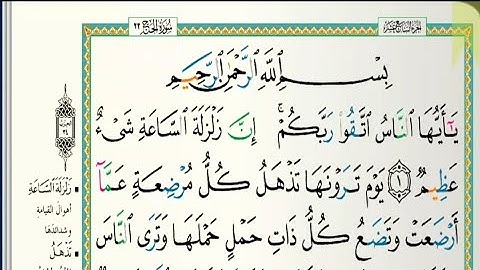 سُورَةُ الحَجِّ ٢٢
بِسْمِ ٱللَّهِ ٱلرَّحْمَٰنِ ٱلرَّحِيمِ
يَٰٓأَيُّهَا ٱلنَّاسُ ٱتَّقُوا۟ رَبَّكُمْ ۚ إِنَّ زَلْزَلَةَ ٱلسَّاعَةِ شَىْءٌ
عَظِيمٌ ١ يَوْمَ تَرَوْنَهَا تَذْهَلُ كُلُّ مُرْضِعَةٍ عَمَّآ
أَرْضَعَتْ وَتَضَعُ كُلُّ ذَاتِ حَمْلٍ حَمْلَهَا وَتَرَى ٱلنَّاسَ
زَلْزَلَةَ السَّاعَةِ
أهوال القيامة
وشدائدها
تَذْهَلُ